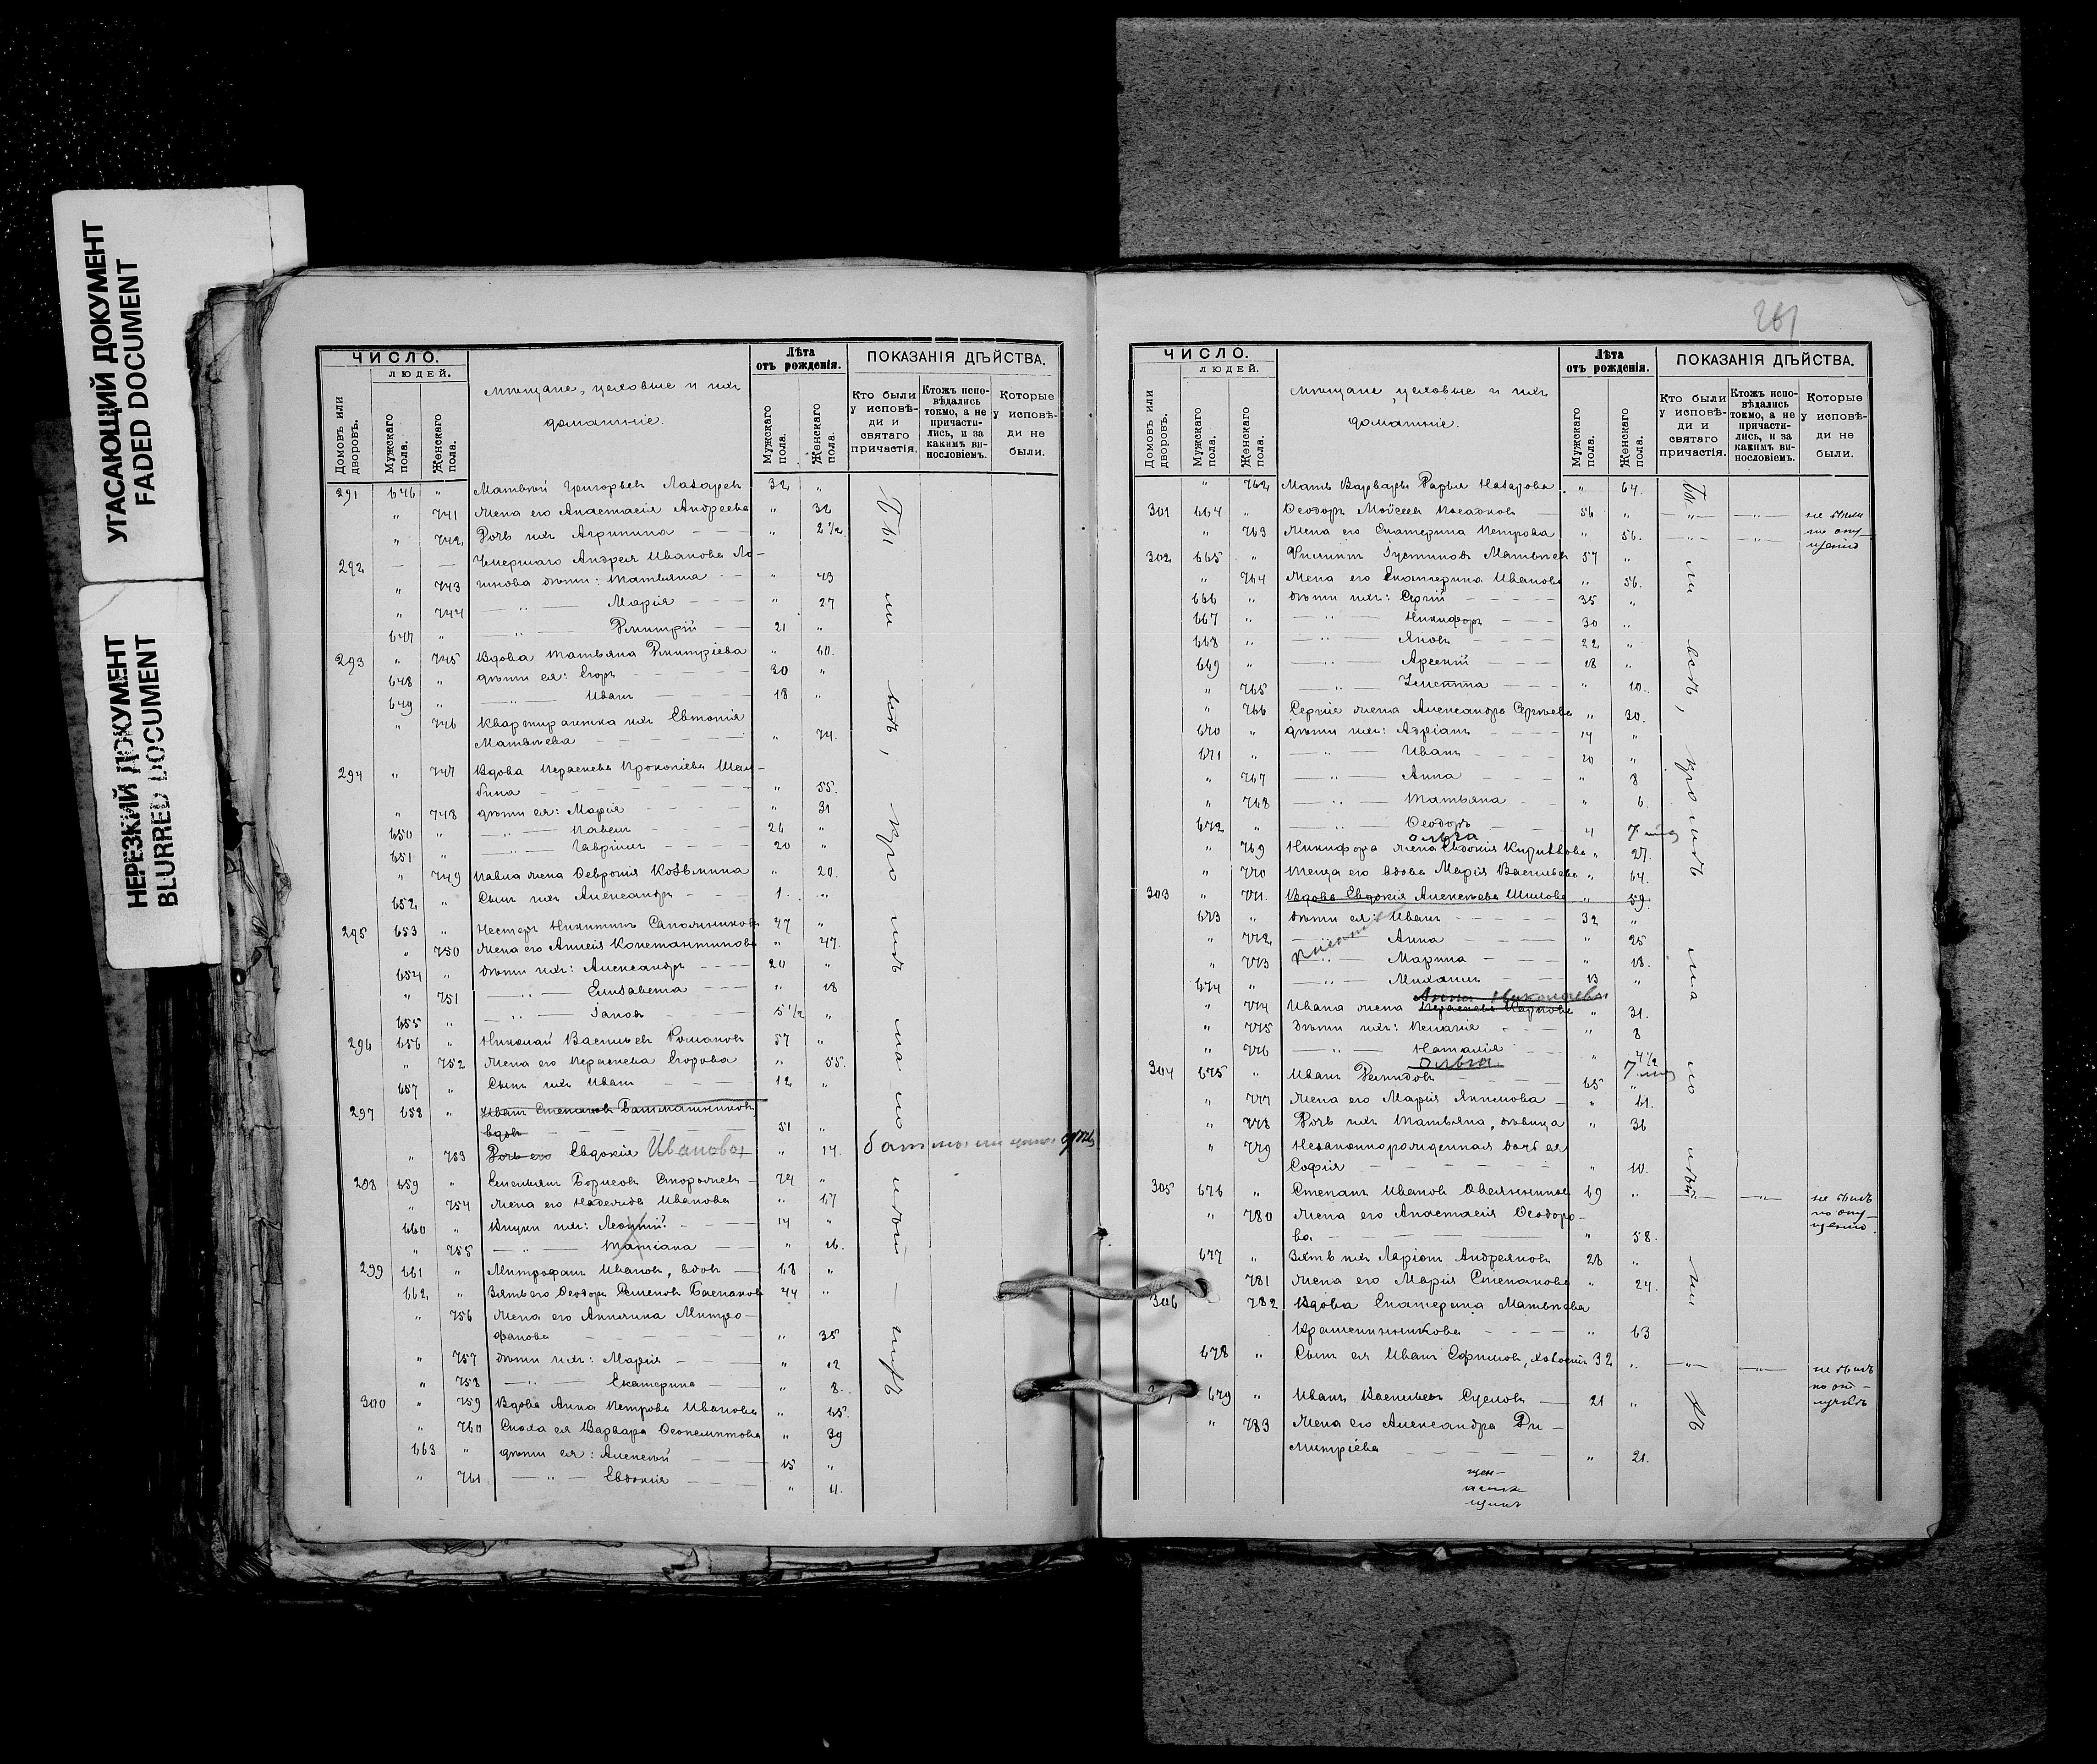 УГАСАЮЩИЙ ДОКУМЕНТ
FADED DOCUMENT
НЕРЕЗКИЙ ДОКУМЕНТ
BLURRED DOCUMENT
ЧИСЛО.
ЛЮДЕЙ.
Домовъ или дворовъ.
Мужскаго пола.
Женскаго пола.
Мѣщане, цеховые и ихъ
домашніе.
Лѣта
отъ рожденія.
Мужскаго пола.
Женскаго пола.
ПОКАЗАНІЯ ДѢЙСТВА.
Кто были у исповѣди и святаго причастія.
Ктожъ исповѣдались токмо, а не причастились, и за какимъ винословіемъ.
Которые у исповѣди не были.
291 646 „ Матвѣй Григорьевъ Лазаревъ 32 „
„ 741 Жена его Анастасія Андреева „ 32
„ 742 Дочь ихъ Агрипина „ 2 1/2
292 — — Умершаго Андрея Иванова Ло-
„ 743 гинова дѣти: Татьяна „ 43
„ 744 — „ — Марія „ 27
647 „ — „ — Дмитрій 21 „
293 „ 745 Вдова Татьяна Дмитріева „ 60.
648 „ дѣти ея: Егоръ 30 „
649 „ — „ — Иванъ 18 „
„ 746 Квартирантка ихъ Евтропія
Матвѣева „ 74.
294 „ 747 Вдова Параскева Прокопіева
бина „ 55.
„ 748 дѣти ея: Марія „ 31
650 „ — „ — Павелъ 26 „
651 „ — „ — Гавріилъ 20 „
„ 749 Павла жена Февронія Козьмина „ 20.
652 „ Сынъ ихъ Александръ 1. „
295 653 „ Несторъ Никитинъ Сапожниковъ 47 „
„ 750 Жена его Анисія Константинова „ 47.
654 „ дѣти ихъ: Александръ 20 „
„ 751 — „ — Елизавета „ 18
655 „ — „ — Іаковъ 5 1/2 „
296 656 „ Николай Васильевъ Романовъ 57 „
„ 752 Жена его Параскева Егорова „ 55.
657 „ Сынъ ихъ Иванъ 12 „
297 658 „ Иванъ Степановъ Башмашниковъ,
вдовъ 51 „
„ 753 Дочь его Евдокія Иванова „ 14.
298 659 „ Емельянъ Борисовъ Сторожевъ 74 „
„ 754 Жена его Надежда Иванова „ 67
660 „ Внуки ихъ: Леонтій 14 „
„ 755 — „ — Татіана „ 16.
299 661 „ Митрофанъ Ивановъ, вдовъ 68 „
662 „ Зять его Ѳеодоръ 44 „
„ 756 Жена его Акилина Митро-
фанова „ 35
„ 757 дѣти ихъ: Марія „ 12
„ 758 — „ — Екатерина „ 8.
300 „ 759 Вдова Анна Петрова Иванова „ 65.
„ 760 Сноха ея Варвара Ѳеоктистова „ 39
663 „ дѣти ея: Алексѣй 15 „
„ 761 — „ — Евдокія „ 11.
Бы ли всѣ, кро мѣ
261
ЧИСЛО.
ЛЮДЕЙ.
Домовъ или дворовъ.
Мужскаго пола.
Женскаго пола.
Мѣщане, цеховые и ихъ
домашніе.
Лѣта
отъ рожденія.
Мужскаго пола.
Женскаго пола.
ПОКАЗАНІЯ ДѢЙСТВА.
Кто были у исповѣди и святаго причастія.
Ктожъ исповѣдались токмо, а не причастились, и за какимъ винословіемъ.
Которые у исповѣди не были.
„ 762 Мать Варвары Дарья Назарова „ 64.
301 664 „ Ѳеодоръ Мойсеевъ Посадковъ 56 „ — „ — — „ — не были
„ 763 Жена его Екатерина Петрова „ 56. — „ — — „ — по опу-
щенію
302 665 „ Филиппъ Іустиновъ Матвѣевъ 57 „
„ 764 Жена его Екатерина Иванова „ 56.
666 „ дѣти ихъ: Сергій 35 „
667 „ — „ — Никифоръ 30 „
668 „ — „ — Яковъ 22 „
669 „ — „ — Арсеній 18 „
„ 765 — „ — „ 10.
„ 766 Сергія жена Александра Сергѣева „ 30.
670 „ дѣти ихъ: Адріанъ 14 „
671 „ — „ — Иванъ 10 „
„ 767 — „ — Анна „ 8
„ 768 — „ — Татьяна „ 6.
672 „ — „ — Ѳеодоръ 4
Ольга
„ 769 Никифора жена Евдокія „ 27.
„ 770 Теща его вдова Марія Васильева „ 64.
303 „ 771. Вдова Евдокія Алексѣева Шилова „ 59.
673 „ дѣти ея: Иванъ 32 „
„ 772 — „ — Анна „ 25
„ 773 Марина „ 18.
674 „ Михаилъ 13 „
Анна Николаева
„ 774 Ивана жена Параскева Карпова „ 31.
„ 775 дѣти ихъ: Пелагія „ 8
„ 776 — „ — Наталія „ 4 1/2
Ольга
304 675 „ Иванъ Демидовъ 65 „
„ 777 Жена его Марія Якимова „ 61.
„ 778 Дочь ихъ Татьяна, дѣвица „ 36
„ 779 Незаконнорожденная дочь ея
Софія „ 10.
305 676 „ Степанъ Ивановъ Овсянниковъ 69 „ — „ — не былъ
„ 780 Жена его Анастасія Ѳеодоро- по опу-
ва „ 58. щенію.
677 „ Зять ихъ Ларіонъ Андреяновъ 28 „
781 Жена его Марія Степанова „ 24.
306 782 Вдова Екатерина Матвѣева
Крашенинникова „ 63
678 „ Сынъ ея Иванъ Ефимовъ, холостъ 32 „ — „ — — „ — не былъ
по от-
лучкѣ
679 „ Иванъ Васильевъ Сусловъ 21 „
„ 783 Жена его Александра Ди-
митріева „ 21.
Бы ли всѣ, кромѣ